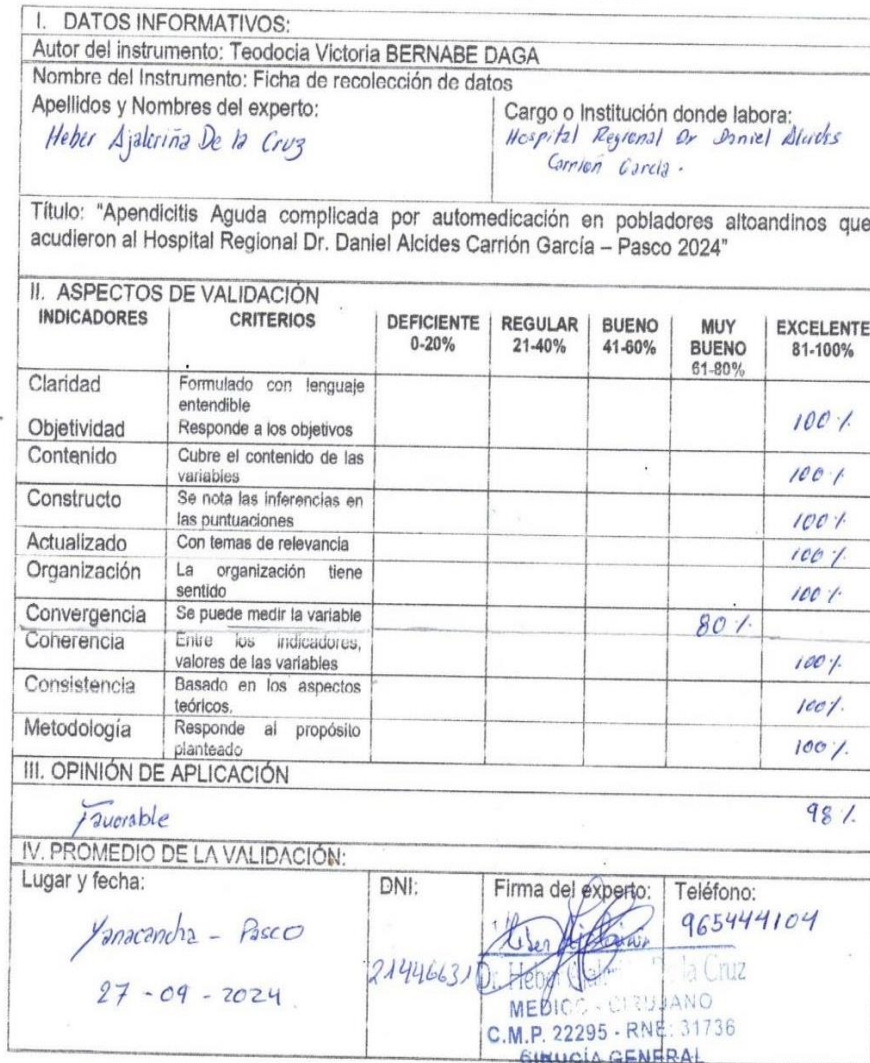 I. DATOS INFORMATIVOS:
Autor del instrumento: Teodocia Victoria BERNABE DAGA
Nombre del Instrumento: Ficha de recolección de datos
Apellidos y Nombres del experto:
Heber Ajalcriña De la Cruz
Cargo o Institución donde labora:
Hospital Regional Dr Daniel Alcides
Carrión García.
Título: "Apendicitis Aguda complicada por automedicación en pobladores altoandinos que
acudieron al Hospital Regional Dr. Daniel Alcides Carrión García – Pasco 2024"
II. ASPECTOS DE VALIDACIÓN
INDICADORES CRITERIOS DEFICIENTE 0-20% REGULAR 21-40% BUENO 41-60% MUY BUENO 61-80% EXCELENTE 81-100%
Claridad Formulado con lenguaje
entendible
Objetividad Responde a los objetivos 100%
Contenido Cubre el contenido de las
variables 100%
Constructo Se nota las inferencias en
las puntuaciones 100%
Actualizado Con temas de relevancia 100%
Organización La organización tiene
sentido 100%
Convergencia Se puede medir la variable 80%
Coherencia Entre los indicadores,
valores de las variables 100%
Consistencia Basado en los aspectos
teóricos. 100%
Metodología Responde al propósito
planteado 100%
III. OPINIÓN DE APLICACIÓN
Favorable 98%
IV. PROMEDIO DE LA VALIDACIÓN:
Lugar y fecha:
Yanacancha - Pasco
27-09-2024
DNI:
21446631
Firma del experto:
Dr. Heber la Cruz
MEDICO - CIRUJANO
C.M.P. 22295 - RNE: 31736
CIRUGÍA GENERAL
Teléfono:
965444104